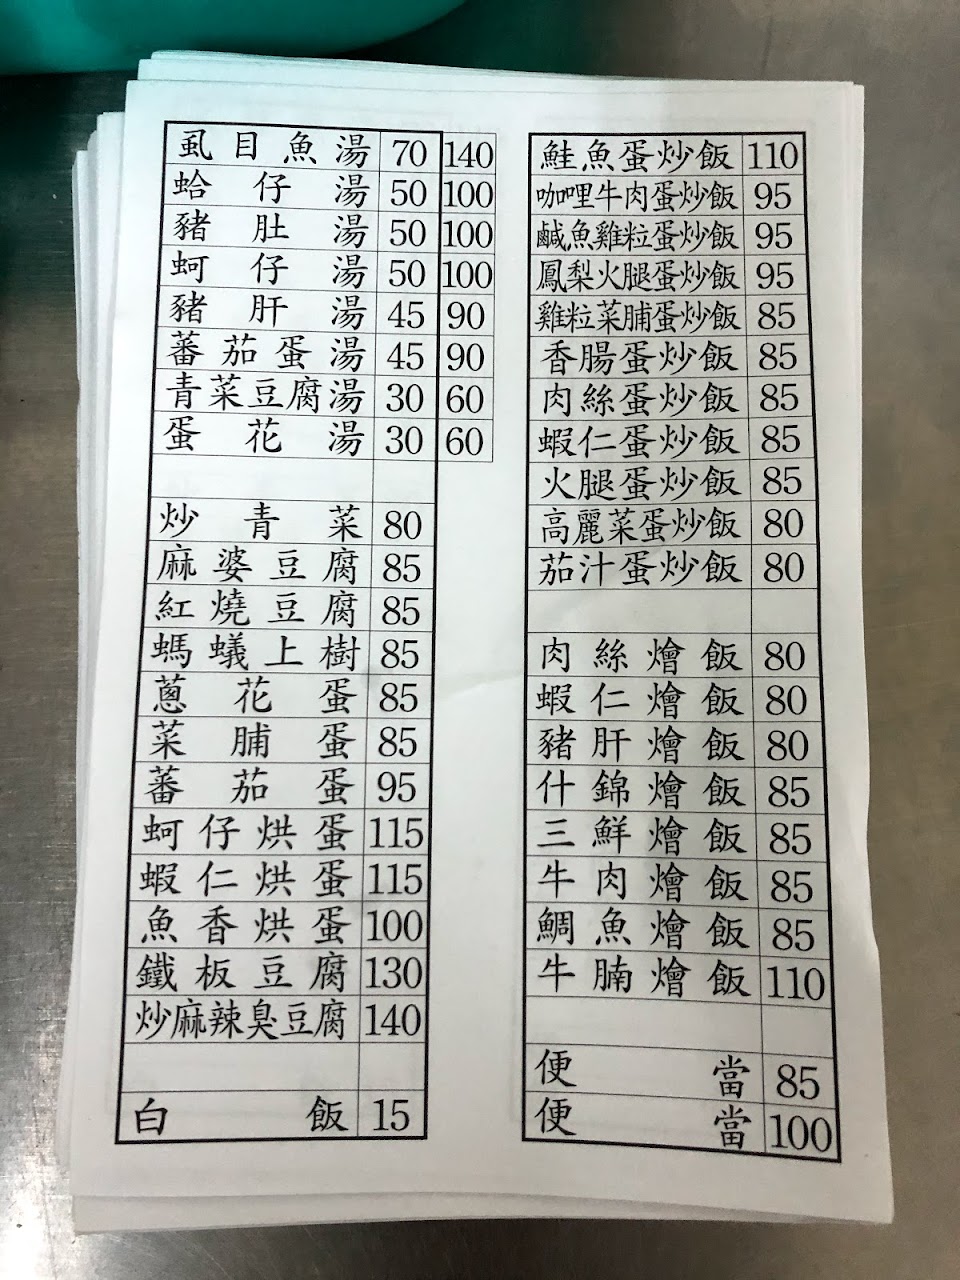 虱目魚湯 70 140
蛤仔湯 50 100
豬肚湯 50 100
蚵仔湯 50 100
豬肝湯 45 90
蕃茄蛋湯 45 90
青菜豆腐湯 30 60
蛋花湯 30 60
炒青菜 80
麻婆豆腐 85
紅燒豆腐 85
螞蟻上樹 85
蔥花蛋 85
菜脯蛋 85
蕃茄蛋 95
蚵仔烘蛋 115
蝦仁烘蛋 115
魚香烘蛋 100
鐵板豆腐 130
炒麻辣臭豆腐 140
白飯 15
鮭魚蛋炒飯 110
咖哩牛肉蛋炒飯 95
鹹魚雞粒蛋炒飯 95
鳳梨火腿蛋炒飯 95
雞粒菜脯蛋炒飯 85
香腸蛋炒飯 85
肉絲蛋炒飯 85
蝦仁蛋炒飯 85
火腿蛋炒飯 85
高麗菜蛋炒飯 80
茄汁蛋炒飯 80
肉絲燴飯 80
蝦仁燴飯 80
豬肝燴飯 80
什錦燴飯 85
三鮮燴飯 85
牛肉燴飯 85
鯛魚燴飯 85
牛腩燴飯 110
便當 85
便當 100